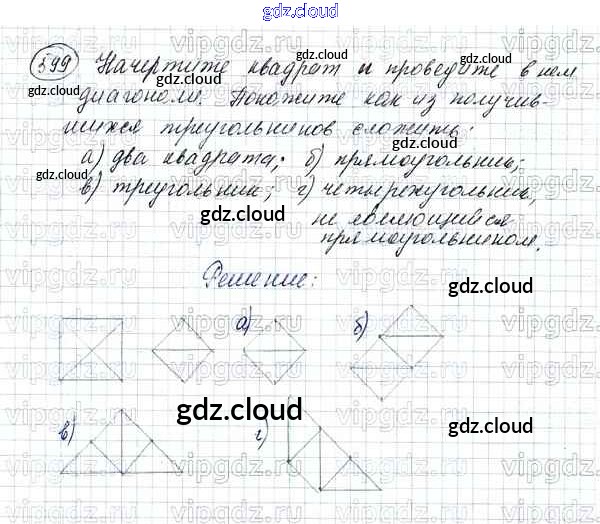 gdz.cloud
599 Начертите квадрат и проведите в нем
диагонали. Покажите как из получив-
шихся треугольников сложить:
а) два квадрата; б) прямоугольник;
в) треугольник; г) четырехугольник,
не являющийся
прямоугольником.
Решение:
а) б)
в) г)
gdz.cloud
gdz.cloud
gdz.cloud
gdz.cloud
gdz.cloud
gdz.cloud
gdz.cloud
gdz.cloud
gdz.cloud
gdz.cloud